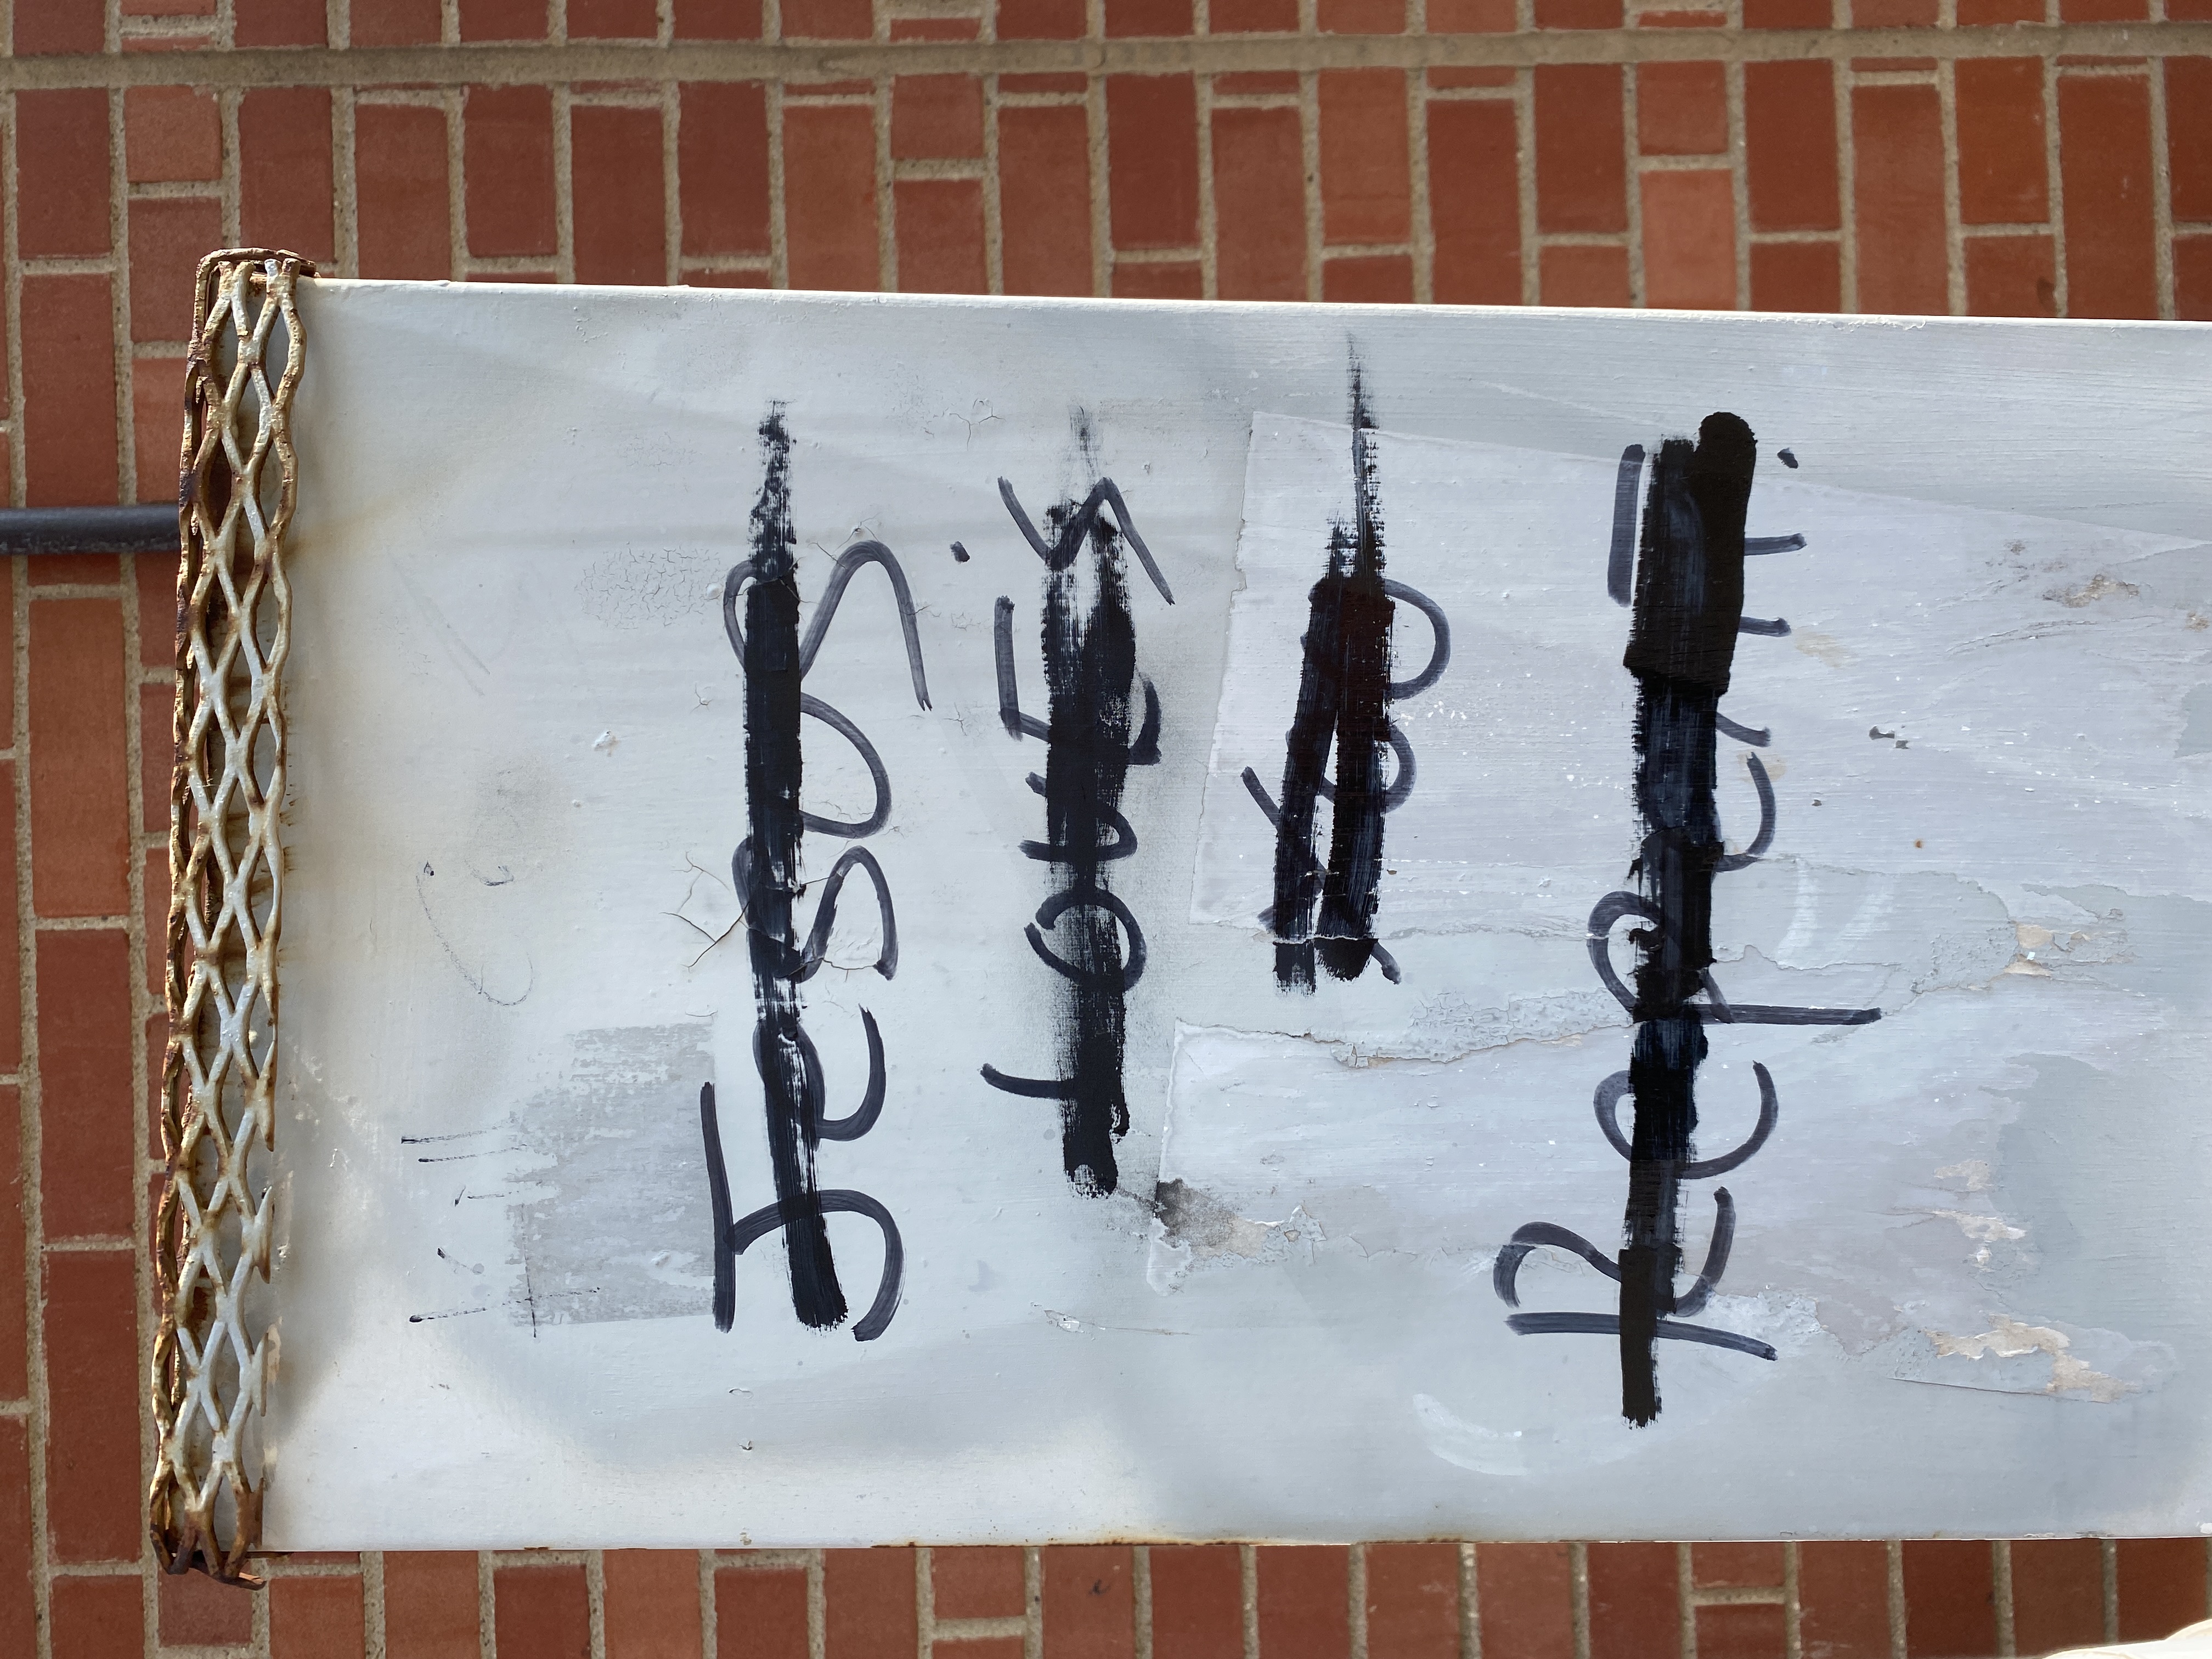 Jesus
LOVES
YOU
Repent.